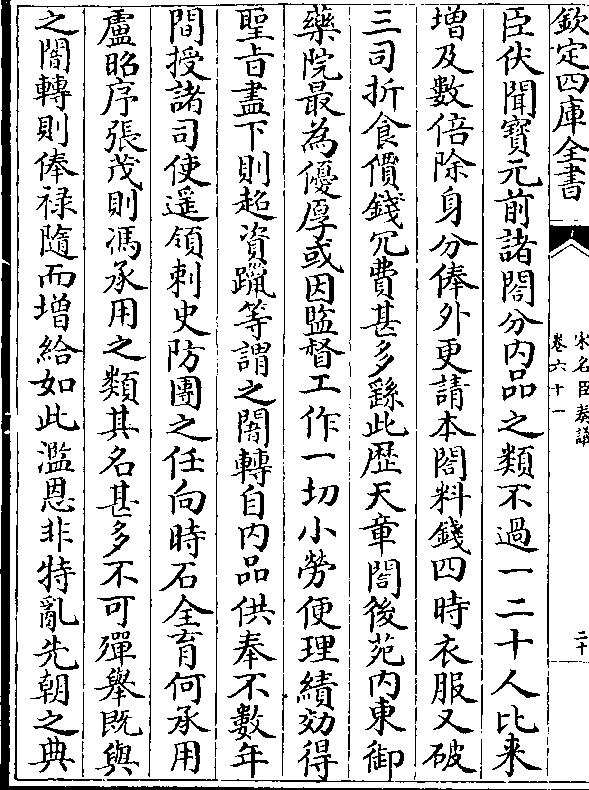 欽定四庫全書
宋名臣奏議
卷六十一
二十
臣伏聞寳元前諸閤分内品之類不過一二十人比来
增及數倍除身分俸外更請本閤料錢四時衣服又破
三司折食價錢冗費甚多繇此歴天章閣後苑内東御
藥院最為優厚或因監督工作一切小勞便理績効得
聖旨盡下則超資躐等謂之闇轉自内品供奉不數年
間授諸司使遥領刺史防團之任向時石全育何承用
盧昭序張茂則馮承用之類其名甚多不可殫舉既與
之闇轉則俸禄隨而增給如此濫恩非特亂先朝之典